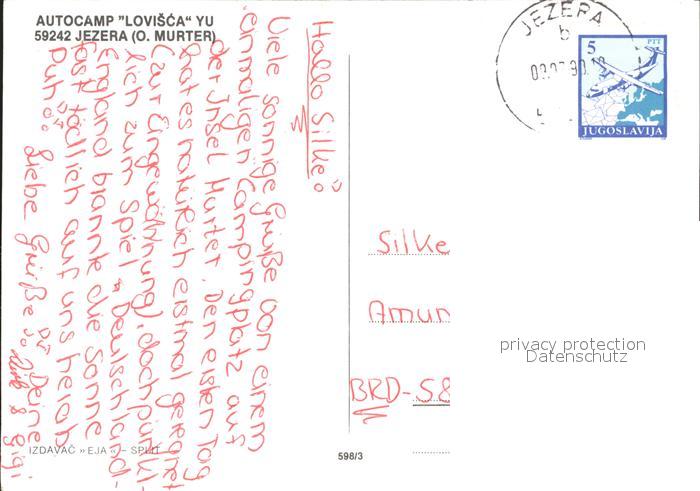 AUTOCAMP "LOVIŠĆA" YU
59242 JEZERA (O. MURTER)
Hallo Silke!
Viele sonnige Grüße von einem
einmaligen Campingplatz auf
der Insel Murter. Den ersten Tag
hat es natürlich erstmal geregnet
(zur Eingewöhnung), doch pünkt-
lich zum Spiel Deutschland-
England brannte die Sonne
fast tödlich auf uns herab
Puh!
Liebe Grüße Deine
& Gigi
JEZERA
b
90
5
PTT
JUGOSLAVIJA
Silke
Amun
BRD-58
privacy protection
Datenschutz
IZDAVAČ »EJA« – SPLIT
598/3